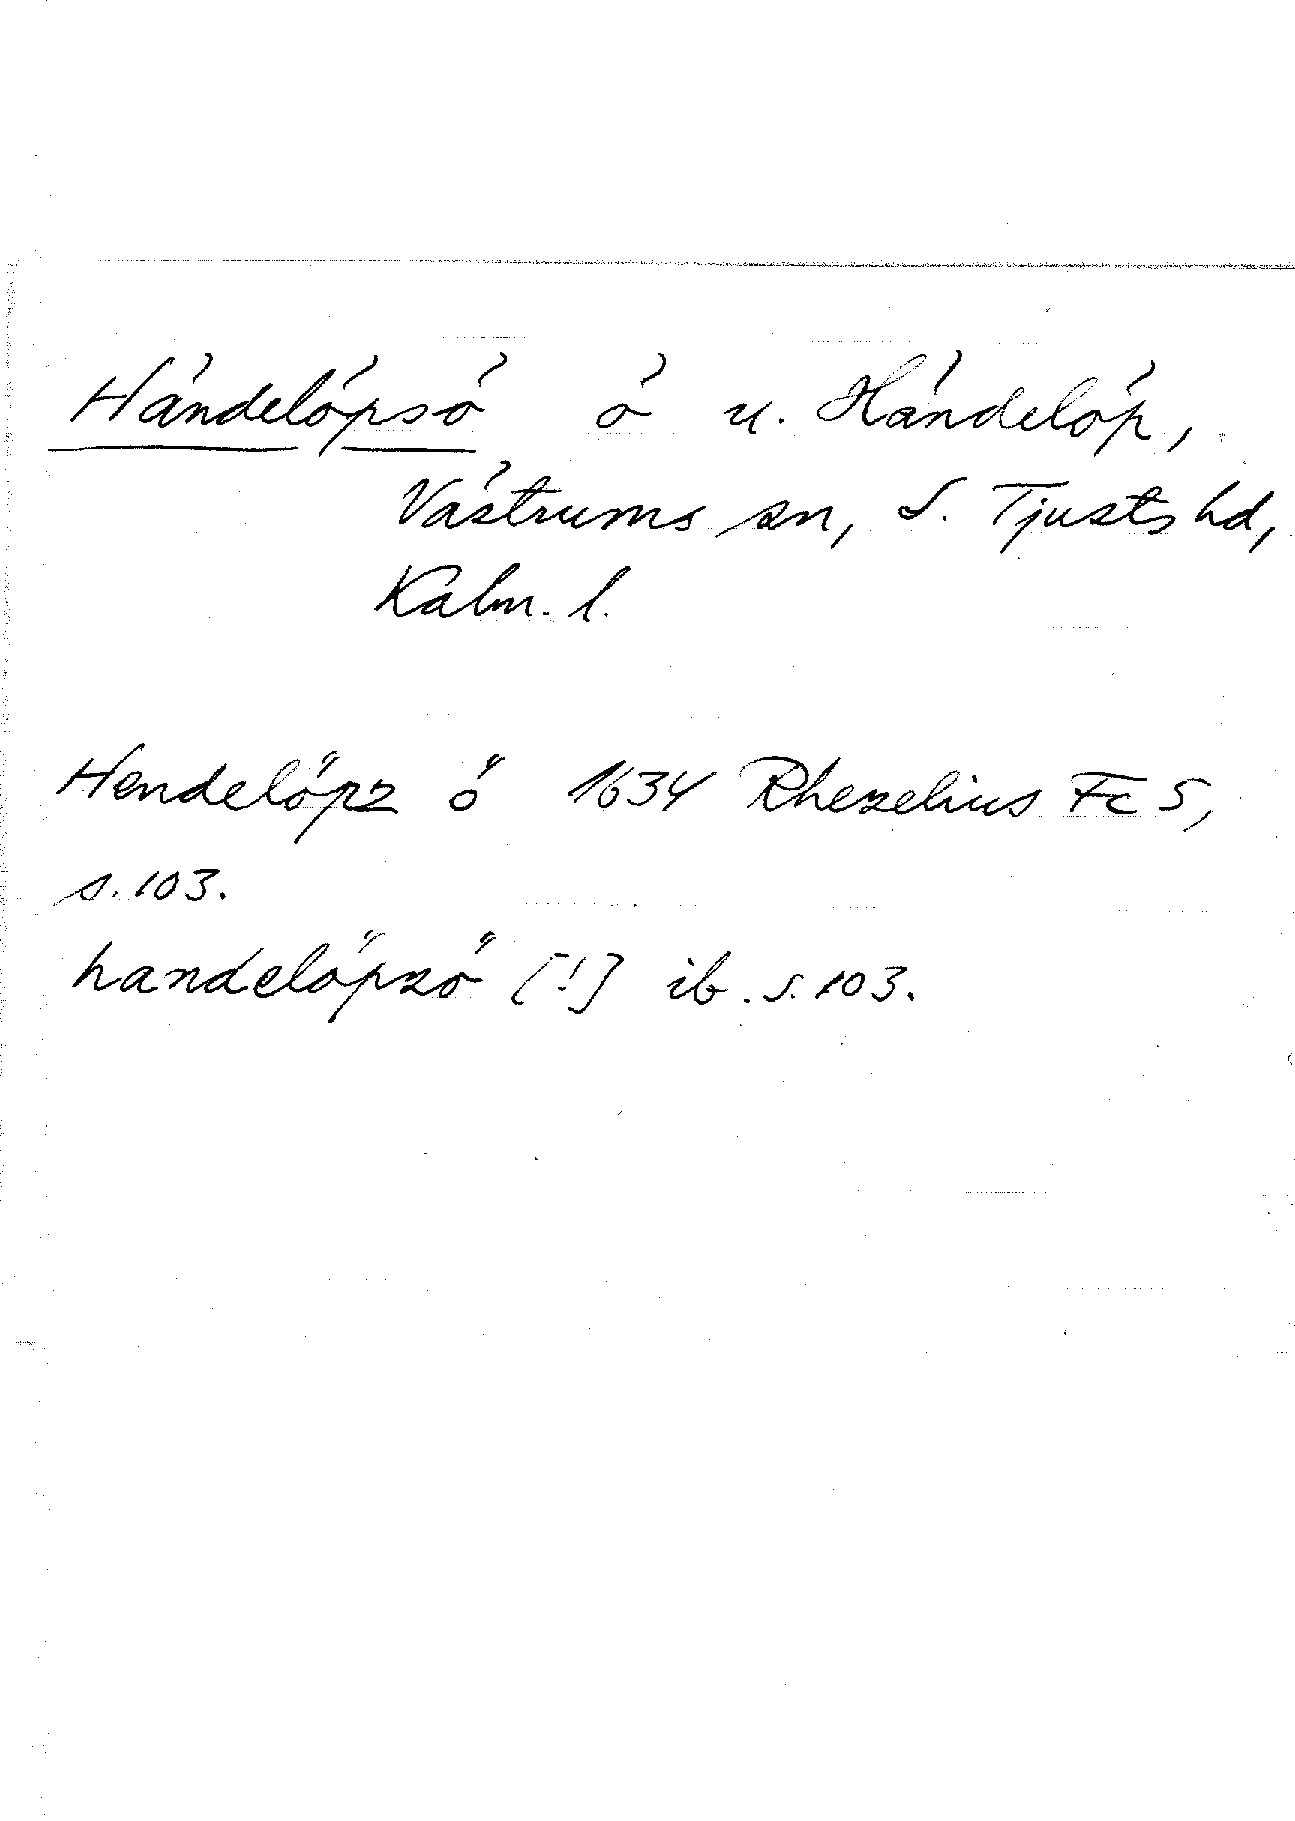 Händelöpsö ö u. Händelöp,
Västrums sn, S. Tjusts hd,
Kalm. l.
Hendelöpz ö 1634 Rhezelius Fc 5,
s. 103.
handelöpzö [!] ib. s. 103.